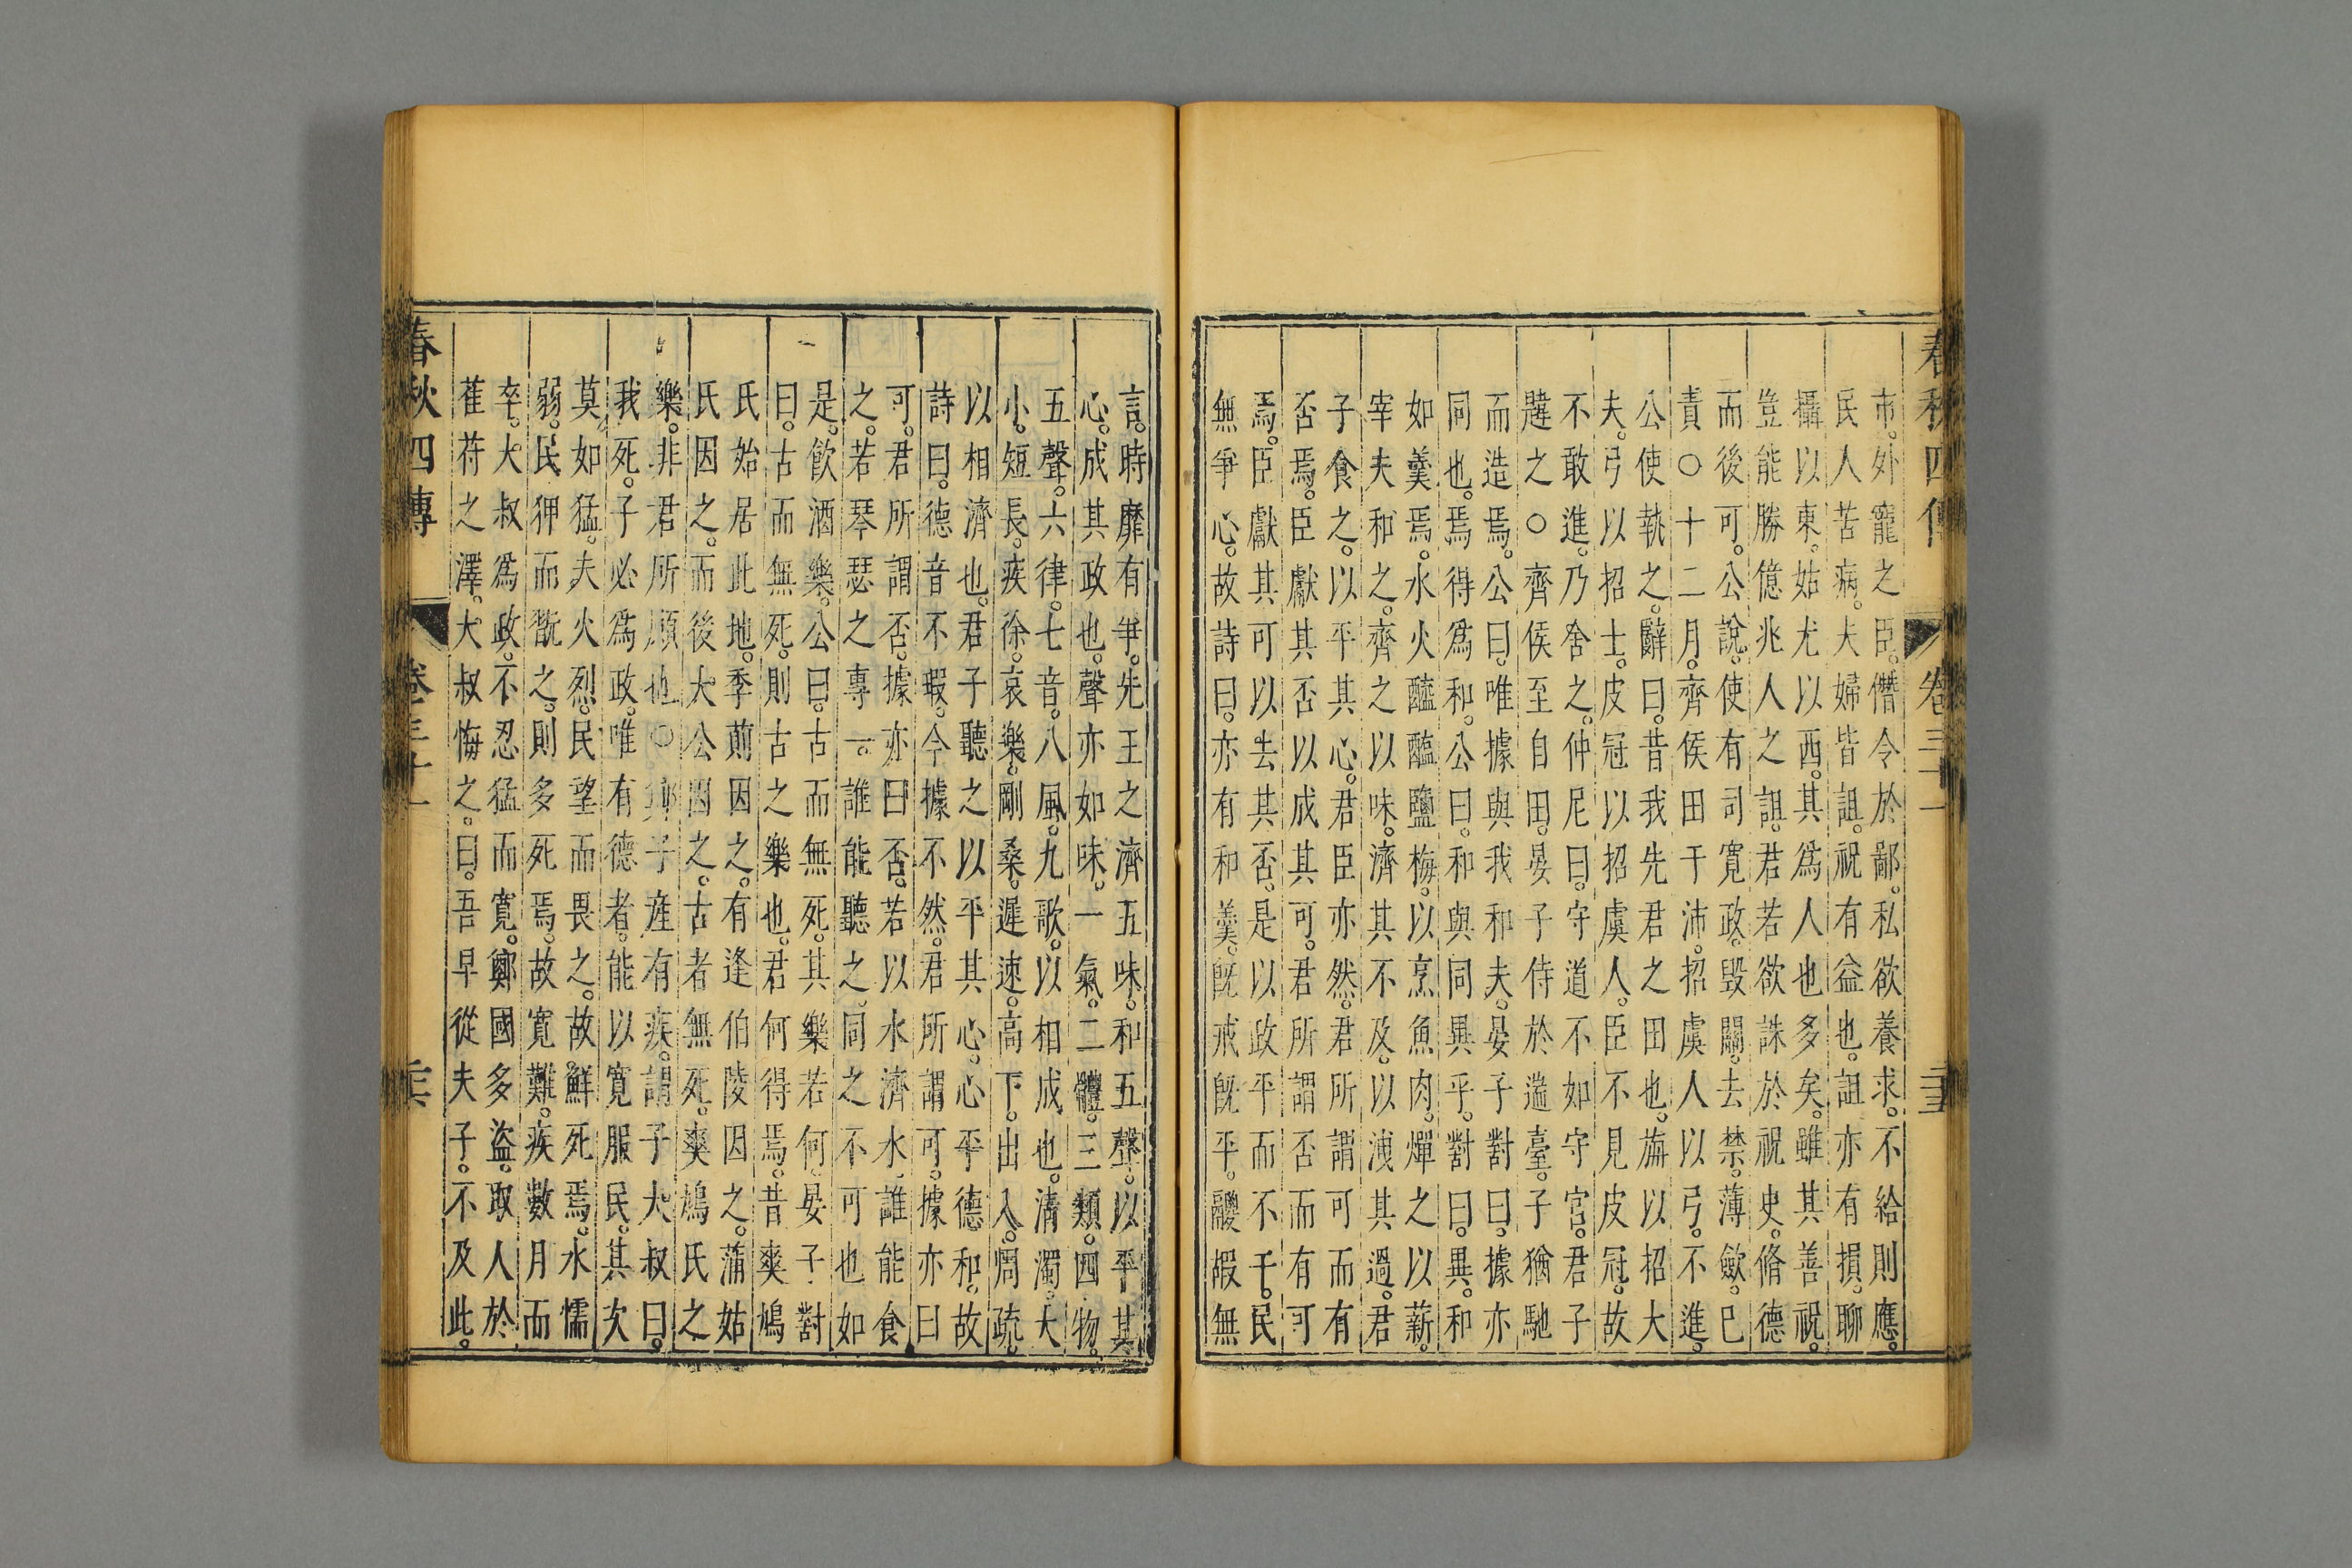 春秋四傳 卷三十一
市。外寵之臣。僭令於鄙。私欲養求。不給則應。
民人苦病。夫婦皆詛。祝有益也。詛亦有損。聊
攝以東。姑尤以西。其爲人也多矣。雖其善祝。
豈能勝億兆人之詛。君若欲誅於祝史。脩德
而後可。公說。使有司寬政。毀關。去禁。薄斂。已
責○十二月。齊侯田于沛。招虞人以弓。不進。
公使執之。辭曰。昔我先君之田也。旃以招大
夫。弓以招士。皮冠以招虞人。臣不見皮冠。故
不敢進。乃舍之。仲尼曰。守道不如守官。君子
韙之○齊侯至自田。晏子侍於遄臺。子猶馳
而造焉。公曰。唯據與我和夫。晏子對曰。據亦
同也。焉得爲和。公曰。和與同異乎。對曰。異。和
如羹焉。水火醯醢鹽梅。以烹魚肉。燀之以薪。
宰夫和之。齊之以味。濟其不及。以洩其過。君
子食之。以平其心。君臣亦然。君所謂可而有
否焉。臣獻其否以成其可。君所謂否而有可
焉。臣獻其可以去其否。是以政平而不干。民
無爭心。故詩曰。亦有和羹。旣戒旣平。鬷嘏無
言。時靡有爭。先王之濟五味。和五聲。以平其
心。成其政也。聲亦如味。一氣。二體。三類。四物。
五聲。六律。七音。八風。九歌。以相成也。淸濁。大
小。短長。疾徐。哀樂。剛柔。遲速。高下。出入。周疏。
以相濟也。君子聽之以平其心。心平德和。故
詩曰。德音不瑕。今據不然。君所謂可。據亦曰
可。君所謂否。據亦曰否。若以水濟水。誰能食
之。若琴瑟之專一。誰能聽之。同之不可也如
是。飮酒樂。公曰。古而無死。其樂若何。晏子對
曰。古而無死。則古之樂也。君何得焉。昔爽鳩
氏始居此地。季萴因之。有逢伯陵因之。蒲姑
氏因之。而後大公因之。古者無死。爽鳩氏之
樂。非君所願也○鄭子產有疾。謂子大叔曰。
我死。子必爲政。唯有德者。能以寬服民。其次
莫如猛。夫火烈。民望而畏之。故鮮死焉。水懦
弱。民狎而翫之。則多死焉。故寬難。疾數月而
卒。大叔爲政。不忍猛而寬。鄭國多盜。取人於
萑苻之澤。大叔悔之。曰。吾早從夫子。不及此。
春秋四傳 卷三十一